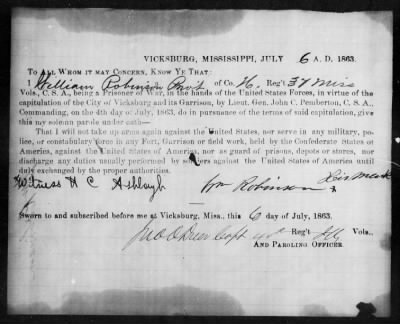 VICKSBURG, MISSISSIPPI, JULY 6 A. D. 1863.
TO ALL WHOM IT MAY CONCERN, KNOW YE THAT:
I William Robinson Pvt of Co. H, Reg't 37 Miss
Vols., C. S. A., being a Prisoner of War, in the hands of the United States Forces, in virtue of the
capitulation of the City of Vicksburg and its Garrison, by Lieut. Gen. John C. Pemberton, C. S. A.,
Commanding, on the 4th day of July, 1863, do in pursuance of the terms of said capitulation, give
this my solemn parole under oath—
That I will not take up arms again against the United States, nor serve in any military,
police, or constabulary force in any Fort, Garrison or field work, held by the Confederate States of
America, against the United States of America, nor as guard of prisons, depots or stores, nor
discharge any duties usually performed by soldiers against the United States of America until
duly exchanged by the proper authorities.
Witness H C Ashbaugh Wm Robinson his mark x
Sworn to and subscribed before me at Vicksburg, Miss., this 6 day of July, 1863.
Capt Reg't Ills Vols.,
AND PAROLING OFFICER.